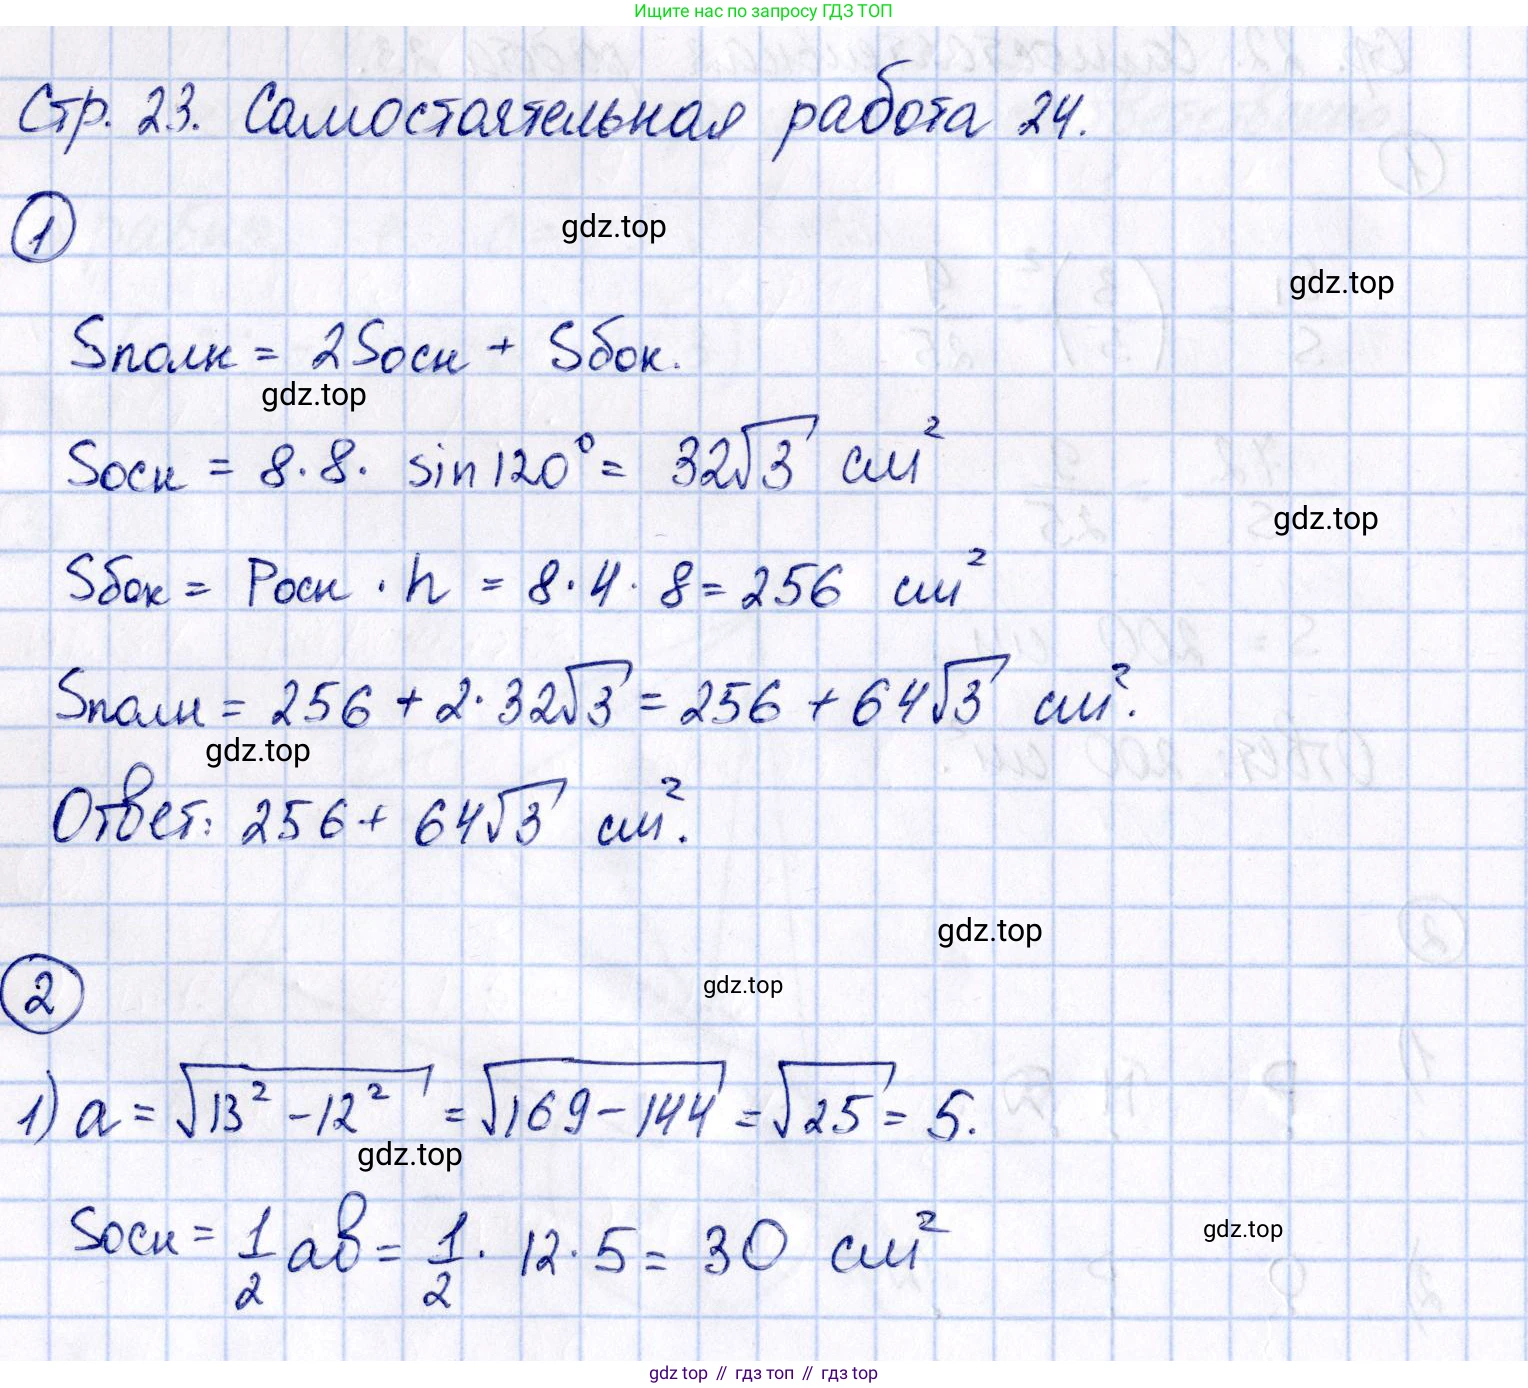 Ищите нас по запросу ГДЗ ТОП
Стр. 23. Самостоятельная работа 24.
1
gdz.top
gdz.top
Sполн = 2Sосн + Sбок.
gdz.top
Sосн = 8·8· sin120° = 32√3 см²
gdz.top
Sбок = Pосн · h = 8·4·8 = 256 см²
Sполн = 256 + 2·32√3 = 256 + 64√3 см².
gdz.top
Ответ: 256 + 64√3 см².
gdz.top
gdz.top
2
1) a = √13² - 12² = √169 - 144 = √25 = 5.
gdz.top
Sосн = 1/2 ab = 1/2 · 12·5 = 30 см²
gdz.top
gdz top // гдз топ // гдз top